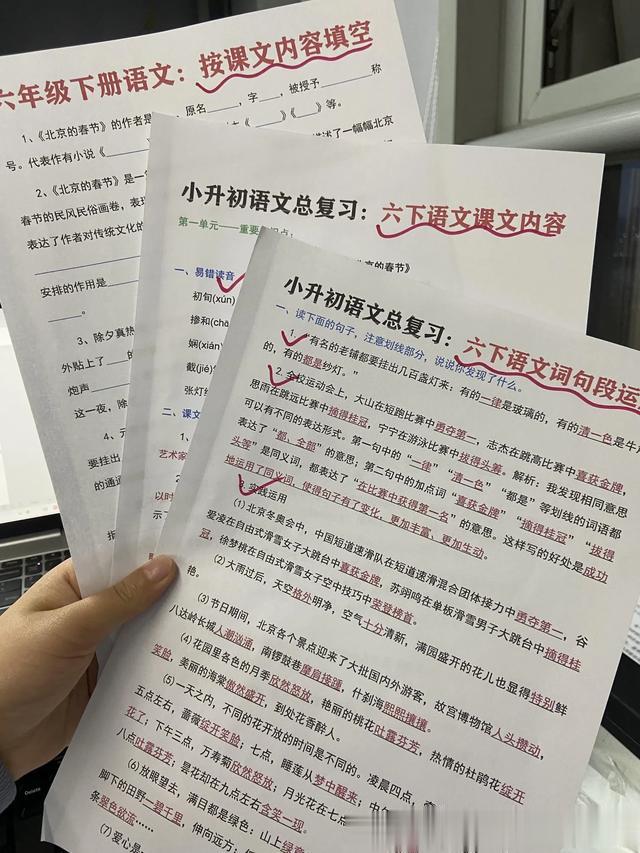 六年级下册语文：按课文内容填空
1、《北京的春节》的作者是
，原名______，字____，被授予______称
号。代表作有小说《______
《____》《____》等。
描述了一幅幅北京
2、《北京的春节》是一
春节的民风民俗画卷，表现
表达了作者对传统文化的
安排的作用是
3、除夕真热
外贴上了____的
炮声
这一夜，除
4、元
要挂出
的通通
小升初语文总复习：六下语文课文内容
第一单元——重要知识点：
京的春节》
一、易错读音
初旬(xún)
掺和(chā
娴(xián)
截(jié)
张灯结
二、课文
艺术家
以时
示了
小升初语文总复习：六下语文词句段运
一、读下面的句子，注意划线部分，说说你发现了什么。
1.“有名的老铺都要挂出几百盏灯来：有的一律是玻璃的，有的清一色是牛角
的，有的都是纱灯。”
2.全校运动会上，大山在短跑比赛中勇夺第一，志杰在跳高比赛中喜获金牌，
思雨在跳远比赛中摘得桂冠，宁宁在游泳比赛中拔得头筹。解析：我发现相同意思
可以有不同的表达形式。第一句中的“一律”“清一色”“都是”等划线的词语都
表达了“都、全部”的意思；第二句中的加点词“喜获金牌”“摘得桂冠”“拔得
头筹”是同义词，都表达了“在比赛中获得第一名”的意思。这样写的好处是成功
地运用了同义词，使得句子有了变化，更加丰富、更加生动。
实践运用
(1)北京冬奥会中，中国短道速滑队在短道速滑混合团体接力中勇夺第一，谷
爱凌在自由式滑雪女子大跳台中喜获金牌，苏翊鸣在单板滑雪男子大跳台中摘得桂
冠，徐梦桃在自由式滑雪女子空中技巧中荣登榜首。
(2)大雨过后，天空格外明净，空气十分清新，满园盛开的花儿也显得特别鲜
艳。
(3)节日期间，北京各个景点迎来了大批国内外游客，故宫博物馆人头攒动，
八达岭长城人潮汹涌，南锣鼓巷摩肩接踵，什刹海熙熙攘攘。
(4)花园里各色的月季欣然怒放，艳丽的桃花吐露芬芳，热情的杜鹃花绽开
笑脸，美丽的海棠傲然盛开，到处花香醉人。
(5)一天之内，不同的花开放的时间是不同的。凌晨四点，
五点左右，蔷薇绽开笑脸；七点，睡莲从梦中醒来；中午
花了；下午三点，万寿菊欣然怒放；月光花在七点
八点吐露芬芳；昙花却在九点左右含笑一现。
(6)放眼望去，满目都是绿色：山上绿意
脚下的田野一碧千里，伸向远方；
条翠色欲流……
(7)爱心是
Delete